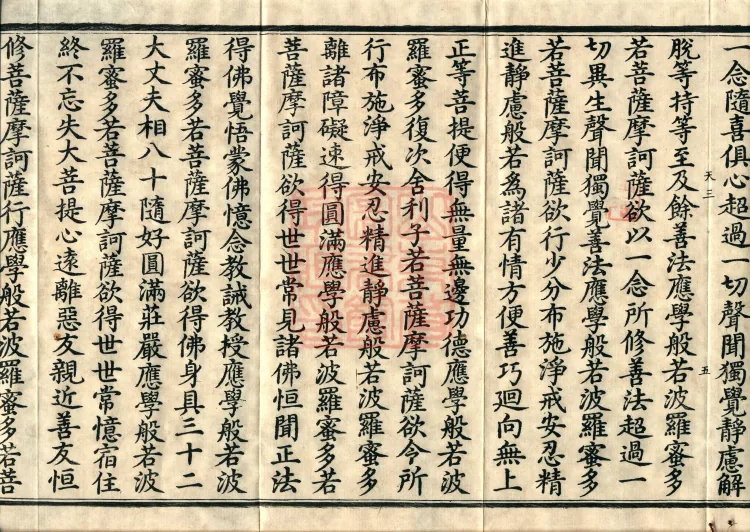 一念隨喜俱心超過一切聲聞獨覺靜慮解
脫等持等至及餘善法應學般若波羅蜜多
天三
五
若菩薩摩訶薩欲以一念所修善法超過一
切異生聲聞獨覺善法應學般若波羅蜜多
若菩薩摩訶薩欲行少分布施淨戒安忍精
進靜慮般若為諸有情方便善巧迴向無上
正等菩提便得無量無邊功德應學般若波
羅蜜多復次舍利子若菩薩摩訶薩欲令所
行布施淨戒安忍精進靜慮般若波羅蜜多
離諸障礙速得圓滿應學般若波羅蜜多若
菩薩摩訶薩欲得世世常見諸佛恒聞正法
得佛覺悟蒙佛憶念教誡教授應學般若波
羅蜜多若菩薩摩訶薩欲得佛身具三十二
大丈夫相八十隨好圓滿莊嚴應學般若波
羅蜜多若菩薩摩訶薩欲得世世常憶宿住
終不忘失大菩提心遠離惡友親近善友恒
修菩薩摩訶薩行應學般若波羅蜜多若菩